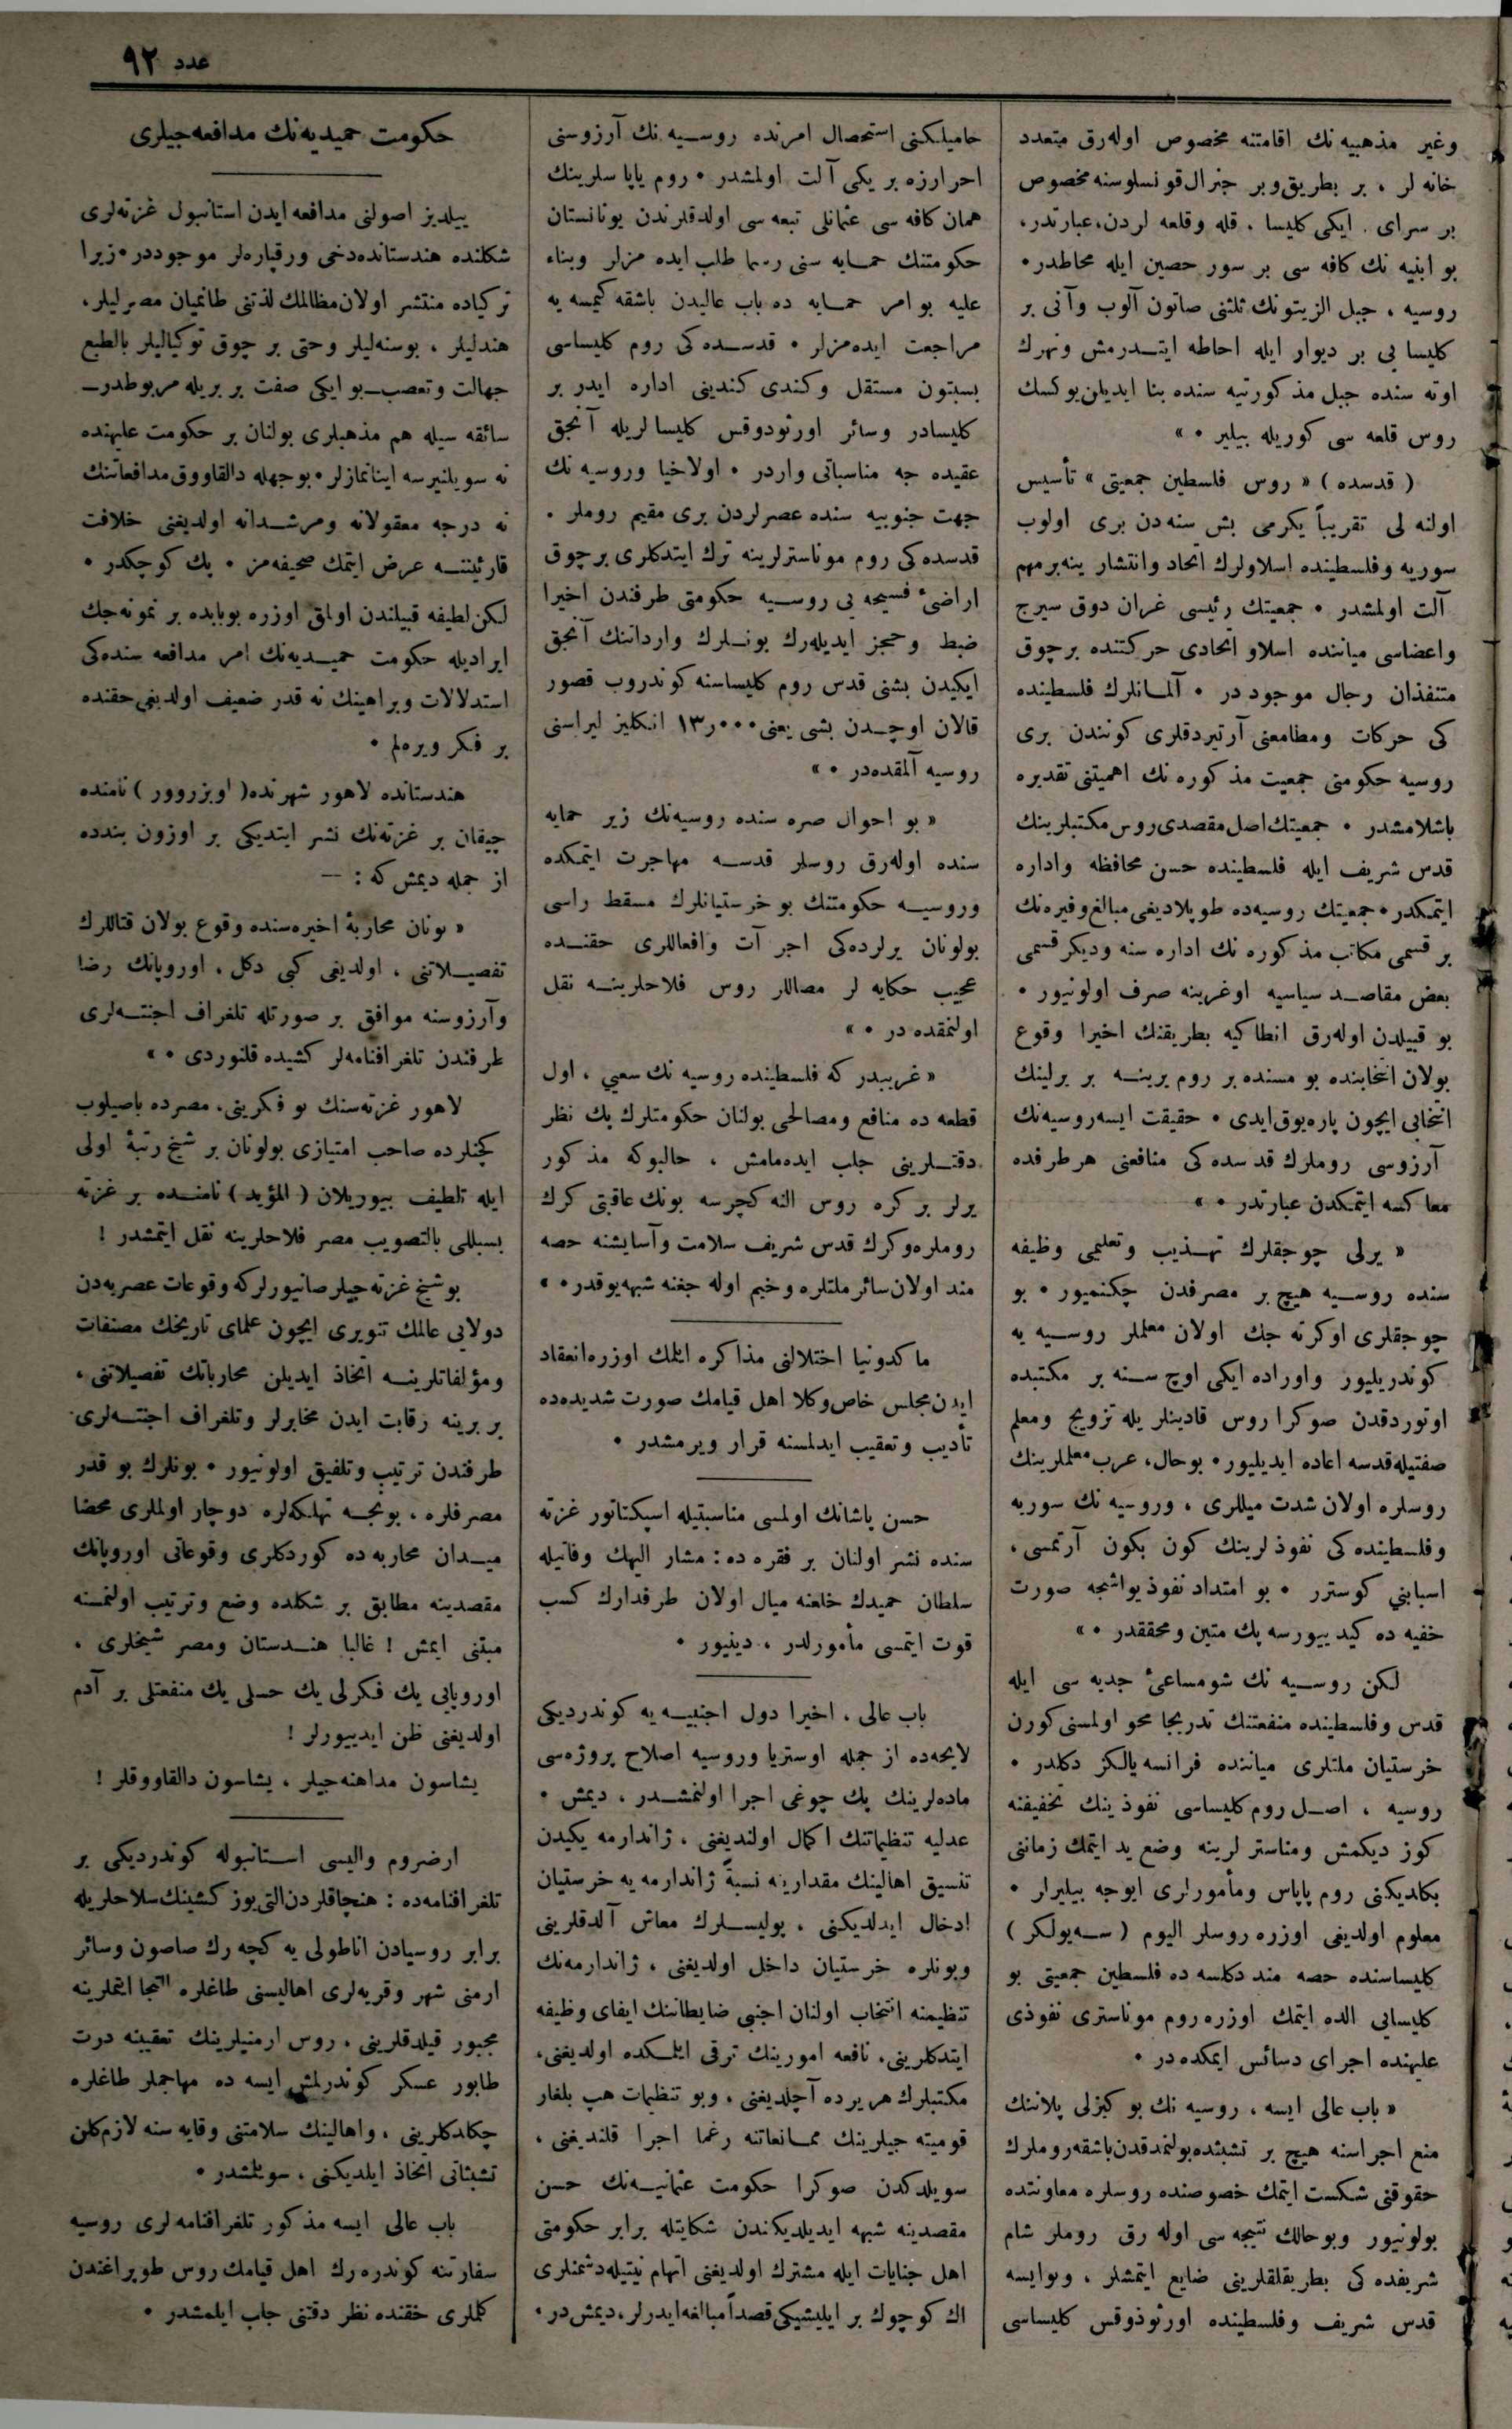 عدد ٩٢
وغير مذهبيه نك اقامتنه مخصوص اوله‌رق متعدد
خانه لر ، بر بطريق وبر جنرال قونسلوسنه مخصوص
بر سراى . ايكى كليسا ، قله وقلعه لردن، عبارتدر،
بو ابنيه نك كافه سى بر سور حصين ايله محاطدر •
روسيه ، جبل الزيتونك ثلثنى صاتون آلوب وآنى بر
كليسا يى بر ديوار ايله احاطه ايتـدرمش ونهرك
اوته سنده جبل مذكورتپه سنده بنا ايديلن يوكسك
روس قلعه سى كوريله بيلير • »
( قدسده ) « روس فلسطين جمعيتى » تأسيس
اولنه لى تقريباً يكرمى بش سنه دن برى اولوب
سوريه وفلسطينده اسلاولرك اتحاد وانتشار ينه برمهم
آلت اولمشدر • جمعيتك رئيسى غران دوق سيرج
واعضاسى مياننده اسلاو اتحادى حركتنده برچوق
متنفذان رجال موجود در • آلمانلرك فلسطينده
كى حركات ومطامعنى آرتيردقلرى كوندن برى
روسيه حكومتى جمعيت مذكوره نك اهميتنى تقديره
باشلامشدر • جمعيتك اصل مقصدى روس مكتبلرينك
قدس شريف ايله فلسطينده حسن محافظه واداره
ايتمكدر • جمعيتك روسيه‌ده طوپلاديغى مبالغ وفيره نك
بر قسمى مكاتب مذكوره نك اداره سنه وديكر قسمى
بعض مقاصـد سياسيه اوغرينه صرف اولونيور •
بو قبيلدن اوله‌رق انطاكيه بطريقنك اخيرا وقوع
بولان انتخابنده بو مسنده بر روم يرينـه بر يرلينك
انتخابى ايچون پاره يوق ايدى • حقيقت ايسه روسيه‌نك
آرزوسى روملرك قدسده كى منافعنى هر طرفده
معاكسه ايتمكدن عبارتدر • »
« يرلى چوجقلرك تهـذيب وتعليمى وظيفه
سنده روسـيه هيچ بر مصرفدن چكنميور • بو
چوجقلرى اوكرته جك اولان معلملر روسـيه يه
كوندريليور واوراده ايكى اوچ سـنه بر مكتبده
اوتوردقدن صوكرا روس قادينلر يله تزويج ومعلم
صفتيله قدسه اعاده ايديليور • بوحال، عرب معلملرينك
روسلره اولان شدت ميللرى ، وروسيه نك سوريه
وفلسطينده كى نفوذ لرينك كون بكون آرتمسى ،
اسبابنى كوسترر • بو امتداد نفوذ يواشجه صورت
خفيه ده كيد ييورسه پك متين ومحققدر • »
لكن روسـيه نك شو مساعئ جديه سى ايله
قدس وفلسطينده منفعتنك تدريجا محو اولمسنى كورن
خرستيان ملتلرى مياننده فرانسه يالكز دكلدر •
روسيه ، اصـل روم كليساسى نفوذ ينك تخفيفنه
كوز ديكمش ومناستر لرينه وضع يد ايتمك زماننى
بكلديكنى روم پاپاس ومأمورلرى ايوجه بيليرلر •
معلوم اولديغى اوزره روسلر اليوم ( سـه‌پولكر )
كليساسنده حصه مند دكلسه ده فلسطين جمعيتى بو
كليسايى الده ايتمك اوزره روم موناسترى نفوذى
عليهنده اجراى دسائس ايمكده در •
« باب عالى ايسه ، روسيه نك بو كيزلى پلاننك
منع اجراسنه هيچ بر تشبثده بولنمدقدن باشقه روملرك
حقوقنى شكست ايتمك خصوصنده روسلره معاونتده
بولونيور وبوحالك نتيجه سى اوله رق روملر شام
شريفده كى بطريقلقلرينى ضايع ايتمشلر ، وبوايسه
قدس شريف وفلسطينده اورثوذوقس كليساسى
حاميلكنى استحصال امرنده روسـيه نك آرزوسنى
احرارزه بر يكى آلت اولمشدر • روم پاپا سلرينك
همان كافه سى عثمانلى تبعه سى اولدقلرندن يونانستان
حكومتنك حمـايه سنى رسما طلب ايده مزلر وبناء
عليه بو امر حمـايه ده باب عاليدن باشقه كيمسه يه
مراجعت ايده‌مزلر • قدسـده كى روم كليساسى
بسبتون مستقل وكندى كندينى اداره ايدر بر
كليسادر وسائر اورثودوقس كليسا لريله آنجق
عقيده جه مناسباتى واردر • اولاخيا وروسيه نك
جهت جنوبيه سنده عصرلردن برى مقيم روملر •
قدسده كى روم موناسترلرينه ترك ايتدكلرى برچوق
اراضئ فسيحه يى روسـيه حكومتى طرفندن اخيرا
ضبط وحجز ايديله‌رك بونـلرك وارداتنك آنجق
ايكيدن بشنى قدس روم كليساسنه كوندروب قصور
قالان اوچـدن بشى يعنى ١٣٫٠٠٠ انكليز ليراسنى
روسيه آلمقده‌در • »
« بو احوال صره سنده روسيه‌نك زير حمايه
سنده اوله‌رق روسلر قدسـه مهاجرت ايتمكده
وروسيـه حكومتنك بو خرستيانلرك مسقط راسى
بولونان يرلرده‌كى اجر آت وافعاللرى حقنـده
عجيب حكايه لر مصاللر روس فلاحلرينـه نقل
اولنمقده در • »
« غريبدر كه فلسطينده روسيه نك سعيي ، اول
قطعه ده منافع ومصالحى بولنان حكومتلرك پك نظر
دقتـلرينى جلب ايده‌مامش ، حالبوكه مذكور
يرلر بر كره روس النه كچرسه بونك عاقبتى كرك
روملره وكرك قدس شريف سلامت وآسايشنه حصه
مند اولان سائر ملتلره وخيم اوله جغنه شبهه يوقدر • »
ماكدونيا اختلالنى مذاكره ايلك اوزره انعقاد
ايدن مجلس خاص وكلا اهل قيامك صورت شديده‌ده
تأديب وتعقيب ايدلمسنه قرار ويرمشدر •
حسن پاشانك اولمسى مناسبتيله اسپكتاتور غزته
سنده نشر اولنان بر فقره ده : مشار اليهك وفاتيله
سلطان حميدك خلعنه ميال اولان طرفدارك كسب
قوت ايتمسى مأمورلدر ، دينيور •
باب عالى ، اخيرا دول اجنبيـه يه كوندرديكى
لايحه‌ده از جمله اوستريا وروسيه اصلاح پروژه‌سى
ماده‌لرينك پك چوغى اجرا اولنمشـدر ، ديمش •
عدليه تنظيماتنك اكمال اولنديغنى ، ژاندارمه يكيدن
تنسيق اهالينك مقدارينه نسبةً ژاندارمه يه خرستيان
ادخال ايدلديكنى ، پوليسـلرك معاش آلدقلرينى
وبونلره خرستيان داخل اولديغنى ، ژاندارمه‌نك
تنظيمنه انتخاب اولنان اجنبى ضابطاننك ايفاى وظيفه
ايتدكلرينى، نافعه امورينك ترقى ايلكده اولديغنى،
مكتبلرك هر يرده آچلديغنى ، وبو تنظيمات هپ بلغار
قوميته جيلرينك ممـانعاتنه رغما اجرا قلنديغنى ،
سويلدكدن صوكرا حكومت عثمانيـه‌نك حسن
مقصدينه شبهه ايديلديكندن شكايتله برابر حكومتى
اهل جنايات ايله مشترك اولديغنى اتهام نيتيله دشمنلرى
اك كوچوك بر ايليشيكى قصداً مبالغه ايدرلر، ديمش در •
حكومت حميديه‌نك مدافعه جيلرى
ييلديز اصولنى مدافعه ايدن استانبول غزته‌لرى
شكلنده هندستانده‌دخى ورقپاره‌لر موجوددر • زيرا
تركياده منتشر اولان مظالمك لذتنى طانميان مصرليلر،
هندليلر ، بوسنه‌ليلر وحتى بر چوق توركيالير بالطبع
جهالت وتعصب ــ بو ايكى صفت بر بريله مربوطدر ــ
سائقه سيله هم مذهبلرى بولنان بر حكومت عليهنده
نه سويلنيرسه اينانمازلر • بوجهله دالقاووق مدافعاتنك
نه درجه معقولانه ومرشـدانه اولديغنى خلافت
قارئينـنه عرض ايتمك صحيفه‌مز • پك كوچكدر •
لكن لطيفه قبيلندن اولمق اوزره بوبابده بر نمونه جك
ايراديله حكومت حميـديه‌نك امر مدافعه سنده‌كى
استدلالات وبراهينك نه قدر ضعيف اولديغى حقنده
بر فكر ويره‌لم •
هندستانده لاهور شهرنده ( اوبزروور ) نامنده
چيقان بر غزته‌نك نشر ايتديكى بر اوزون بندده
از جمله ديمش كه : —
« يونان محاربهٔ اخيره‌سنده وقوع بولان قتاللرك
تفصيـلاتنى ، اولديغى كبى دكل ، اوروپانك رضا
وآرزوسنه موافق بر صورتله تلغراف اجنتـه‌لرى
طرفندن تلغرافنامه‌لر كشيده قلنوردى • »
لاهور غزته‌سنك بو فكرينى، مصرده باصيلوب
كچنلرده صاحب امتيازى بولونان بر شيخ رتبهٔ اولى
ايله تلطيف بيوريلان ( المؤيد ) نامنـده بر غزته
بسبللى بالتصويب مصر فلاحلرينه نقل ايتمشدر !
بو شيخ غزته جيلر صانيورلر كه وقوعات عصريه‌دن
دولايى عالمك تنويرى ايچون علماى تاريخك مصنفات
ومؤلفاتلرينـه اتخاذ ايديلن محارباتك تفصيلاتنى ،
بر برينه رقابت ايدن مخابرلر وتلغراف اجنتـه‌لرى
طرفندن ترتيب وتلفيق اولونيور • بونلرك بو قدر
مصرفلره ، بونجـه تهلكه‌لره دوچار اولملرى محضا
ميـدان محاربه ده كوردكلرى وقوعاتى اوروپانك
مقصدينه مطابق بر شكلده وضع وترتيب اولنمسنه
مبتنى ايمش ! غالبا هنـدستان ومصر شيخلرى ،
اوروپايى يك فكرلى يك حسلى يك منفعتلى بر آدم
اولديغنى ظن ايدييورلر !
يشاسون مداهنه جيلر ، يشاسون دالقاووقلر !
ارضروم واليسى استانبوله كوندرديكى بر
تلغرافنامه‌ده : هنچاقلردن التى يوز كشينك سلاحلريله
برابر روسيادن اناطولى يه كچه رك صاصون وسائر
ارمنى شهر وقريه‌لرى اهاليسنى طاغلره التجا ايتملرينه
مجبور قيلدقلرينى ، روس ارمنيلرينك تعقيبنه درت
طابور عسكر كوندرلمش ايسه ده مهاجملر طاغلره
چكلدكلرينى ، واهالينك سلامتنى وقايه سنه لازم كلن
تشبثاتى اتخاذ ايلديكنى ، سويلشدر •
باب عالى ايسه مذكور تلغرافنامه‌لرى روسيه
سفارتنه كوندره‌رك اهل قيامك روس طوپراغندن
كلملرى حقنده نظر دقتنى جلب ايلمشدر •